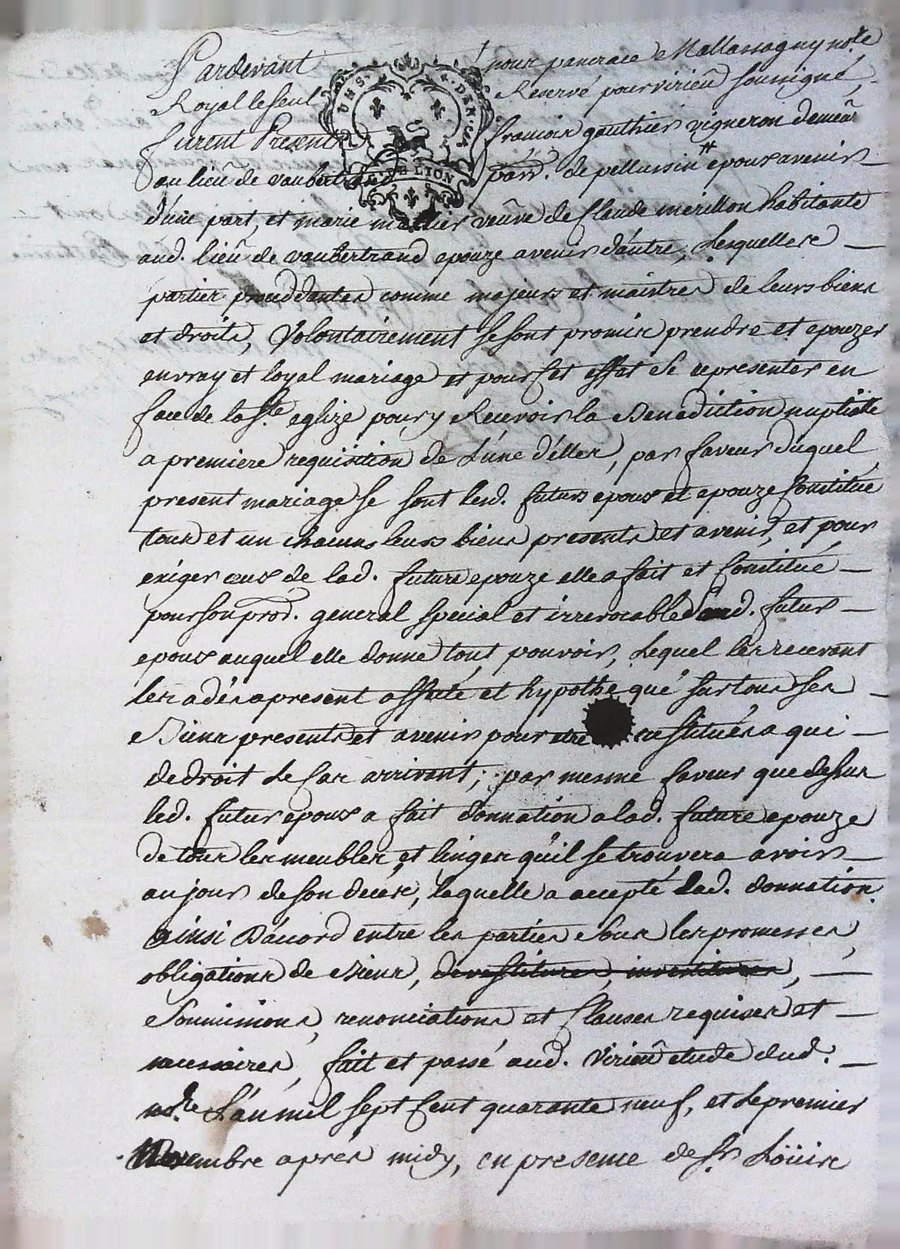 Pardevant pour pancrace Mallassagny nre
Royal le seul Reservé pour virieu soussigné,
furent Presents francois gauthier vigneron demeut
au lieu de vaubertrand parr. de pellussin epoux avenir
d'une part, et marie veuve de Claude merillon habitante
aud. lieu de vaubertrand epouze avenir d'autre, Lesquelles
parties proceddantes comme majeurs et maistres de leurs biens
et droits, volontairement se sont promis prendre et epouzer
en vray et loyal mariage et pour cet effet se representer en
face de la Ste eglize pour y Recevoir la Benediction nuptialle
a premiere requisition de L'une d'elles, par faveur duquel
present mariage se sont lesd. futurs epoux et epouze Constitué
tous et un chacuns leurs biens presents et avenir, et pour
exiger ceux de lad. future epouze elle a fait et Constitué
pour son prod. general special et irrevocable led. futur
epoux auquel elle donne tout pouvoir, Lequel les recevant
les a dés apresent assuré et hypothequé sur tous ses
Biens presents et avenir pour etre restitués a qui
de droit Le Cas arrivant; par mesme faveur que dessus
led. futur epoux a fait donnation a lad. future epouze
de tous les meubles et linges qu'il se trouvera avoir
au jour de son decés, laquelle a accepté lad. donnation
ainsi D'accord entre les parties sous les promesses,
obligations de Biens, devestitures, investitures,
Soumissions, renonciations et Clauses requises et
necessaires, fait et passé aud. virieu etude dud.
nore L'an mel sept Cent quarante neuf, et Le premier
Novembre apres midy, en presence de Sr Loüis
DE LION